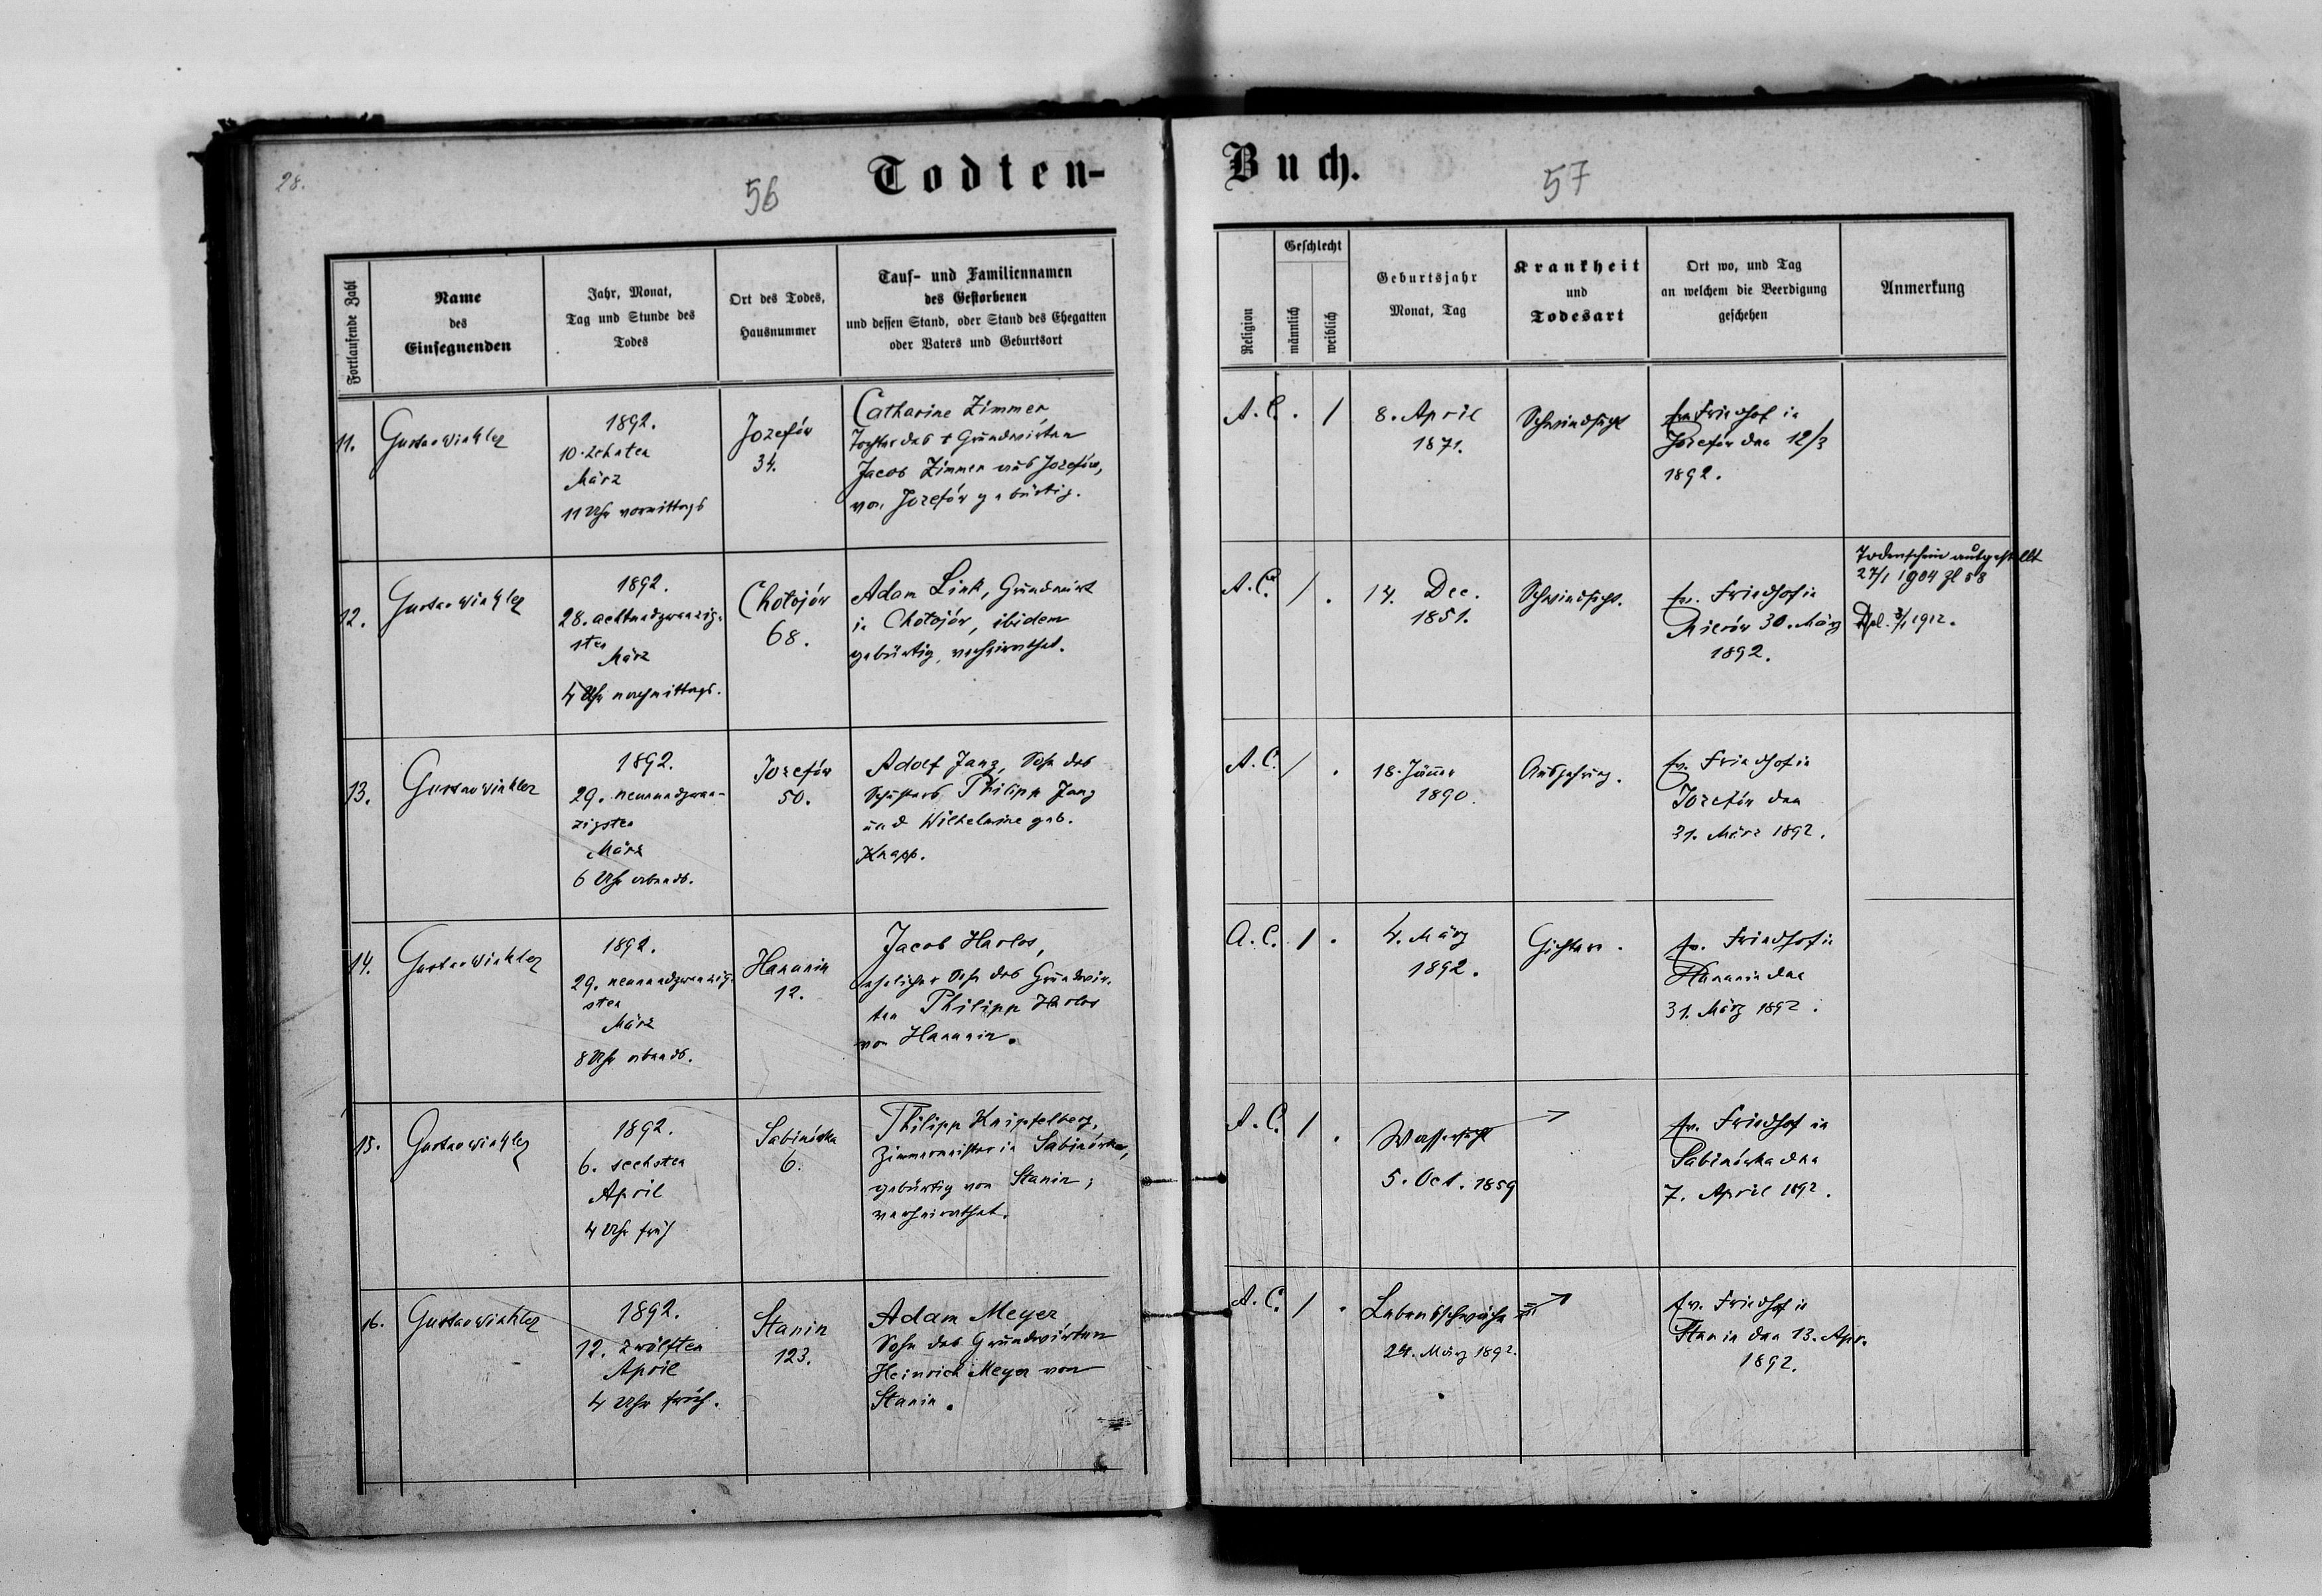 28.
56
Todten-
Fortlaufende Zahl
Name
des
Einsegnenden
Jahr, Monat,
Tag und Stunde des
Todes
Ort des Todes,
Hausnummer
Tauf- und Familiennamen
des Gestorbenen
und dessen Stand, oder Stand des Ehegatten
oder Vaters und Geburtsort
11.
Gustav Winkler
1892.
10. zehnten
März
11 Uhr vormittags
Jozefów
34.
Catharine Zimmer
Tochter des † Grundwirten
Jacob Zimmer aus Jozefów,
von Jozefów gebürtig.
12.
Gustav Winkler
1892.
28. achtundzwanzig-
sten
März
4 Uhr nachmittags.
Chołojów
68.
Adam Link, Grundwirt
in Chołojów, ibidem
gebürtig, verheirathet.
13.
Gustav Winkler
1892.
29. neunundzwan-
zigsten
März
6 Uhr abends.
Jozefów
50.
Adolf Jang, Sohn des
Schusters Philipp Jang
und Wilhelmine geb.
Knapp.
14.
Gustav Winkler
1892.
29. neunundzwanzig-
sten
März
8 Uhr abends.
Hanunin
12.
Jacob Harlos,
ehelicher Sohn des Grundwir-
ten Philipp Harlos
von Hanunin.
15.
Gustav Winkler
1892.
6. sechsten
April
4 Uhr früh
Sabinówka
6.
Philipp Knipfelberg,
Zimmermeister in Sabinówka,
gebürtig von Stanin,
verheirathet.
16.
Gustav Winkler
1892.
12. zwölften
April
4 Uhr früh.
Stanin
123.
Adam Meyer
Sohn des Grundwirten
Heinrich Meyer von
Stanin.
Buch.
57
Religion
Geschlecht
männlich
weiblich
Geburtsjahr
Monat, Tag
Krankheit
und
Todesart
Ort wo, und Tag
an welchem die Beerdigung
geschehen
Anmerkung
A. C. . /
8. April
1871.
Schwindsucht
ev. Friedhof in
Jozefów den 12/3
1892.
A. C. / .
14. Dec.
1851.
Schwindsucht.
ev. Friedhof in
Mierów 30. März
1892.
Todenschein ausgestellt
27/1 1904 Zl 58
Dpl. 3/1 1912.
A. C. / .
18. Jänner
1890.
Auszehrung.
ev. Friedhof in
Jozefów den
31. März 1892.
A. C. / .
4. März
1892.
Gichter.
ev. Friedhof in
Hanunin den
31. März 1892.
A. C. / .
Wassersucht
5. Oct. 1859
ev. Friedhof in
Sabinówka den
7. April 1892.
A. C. / .
Lebensschwäche
24. März 1892.
ev. Friedhof in
Stanin den 13. Apr.
1892.